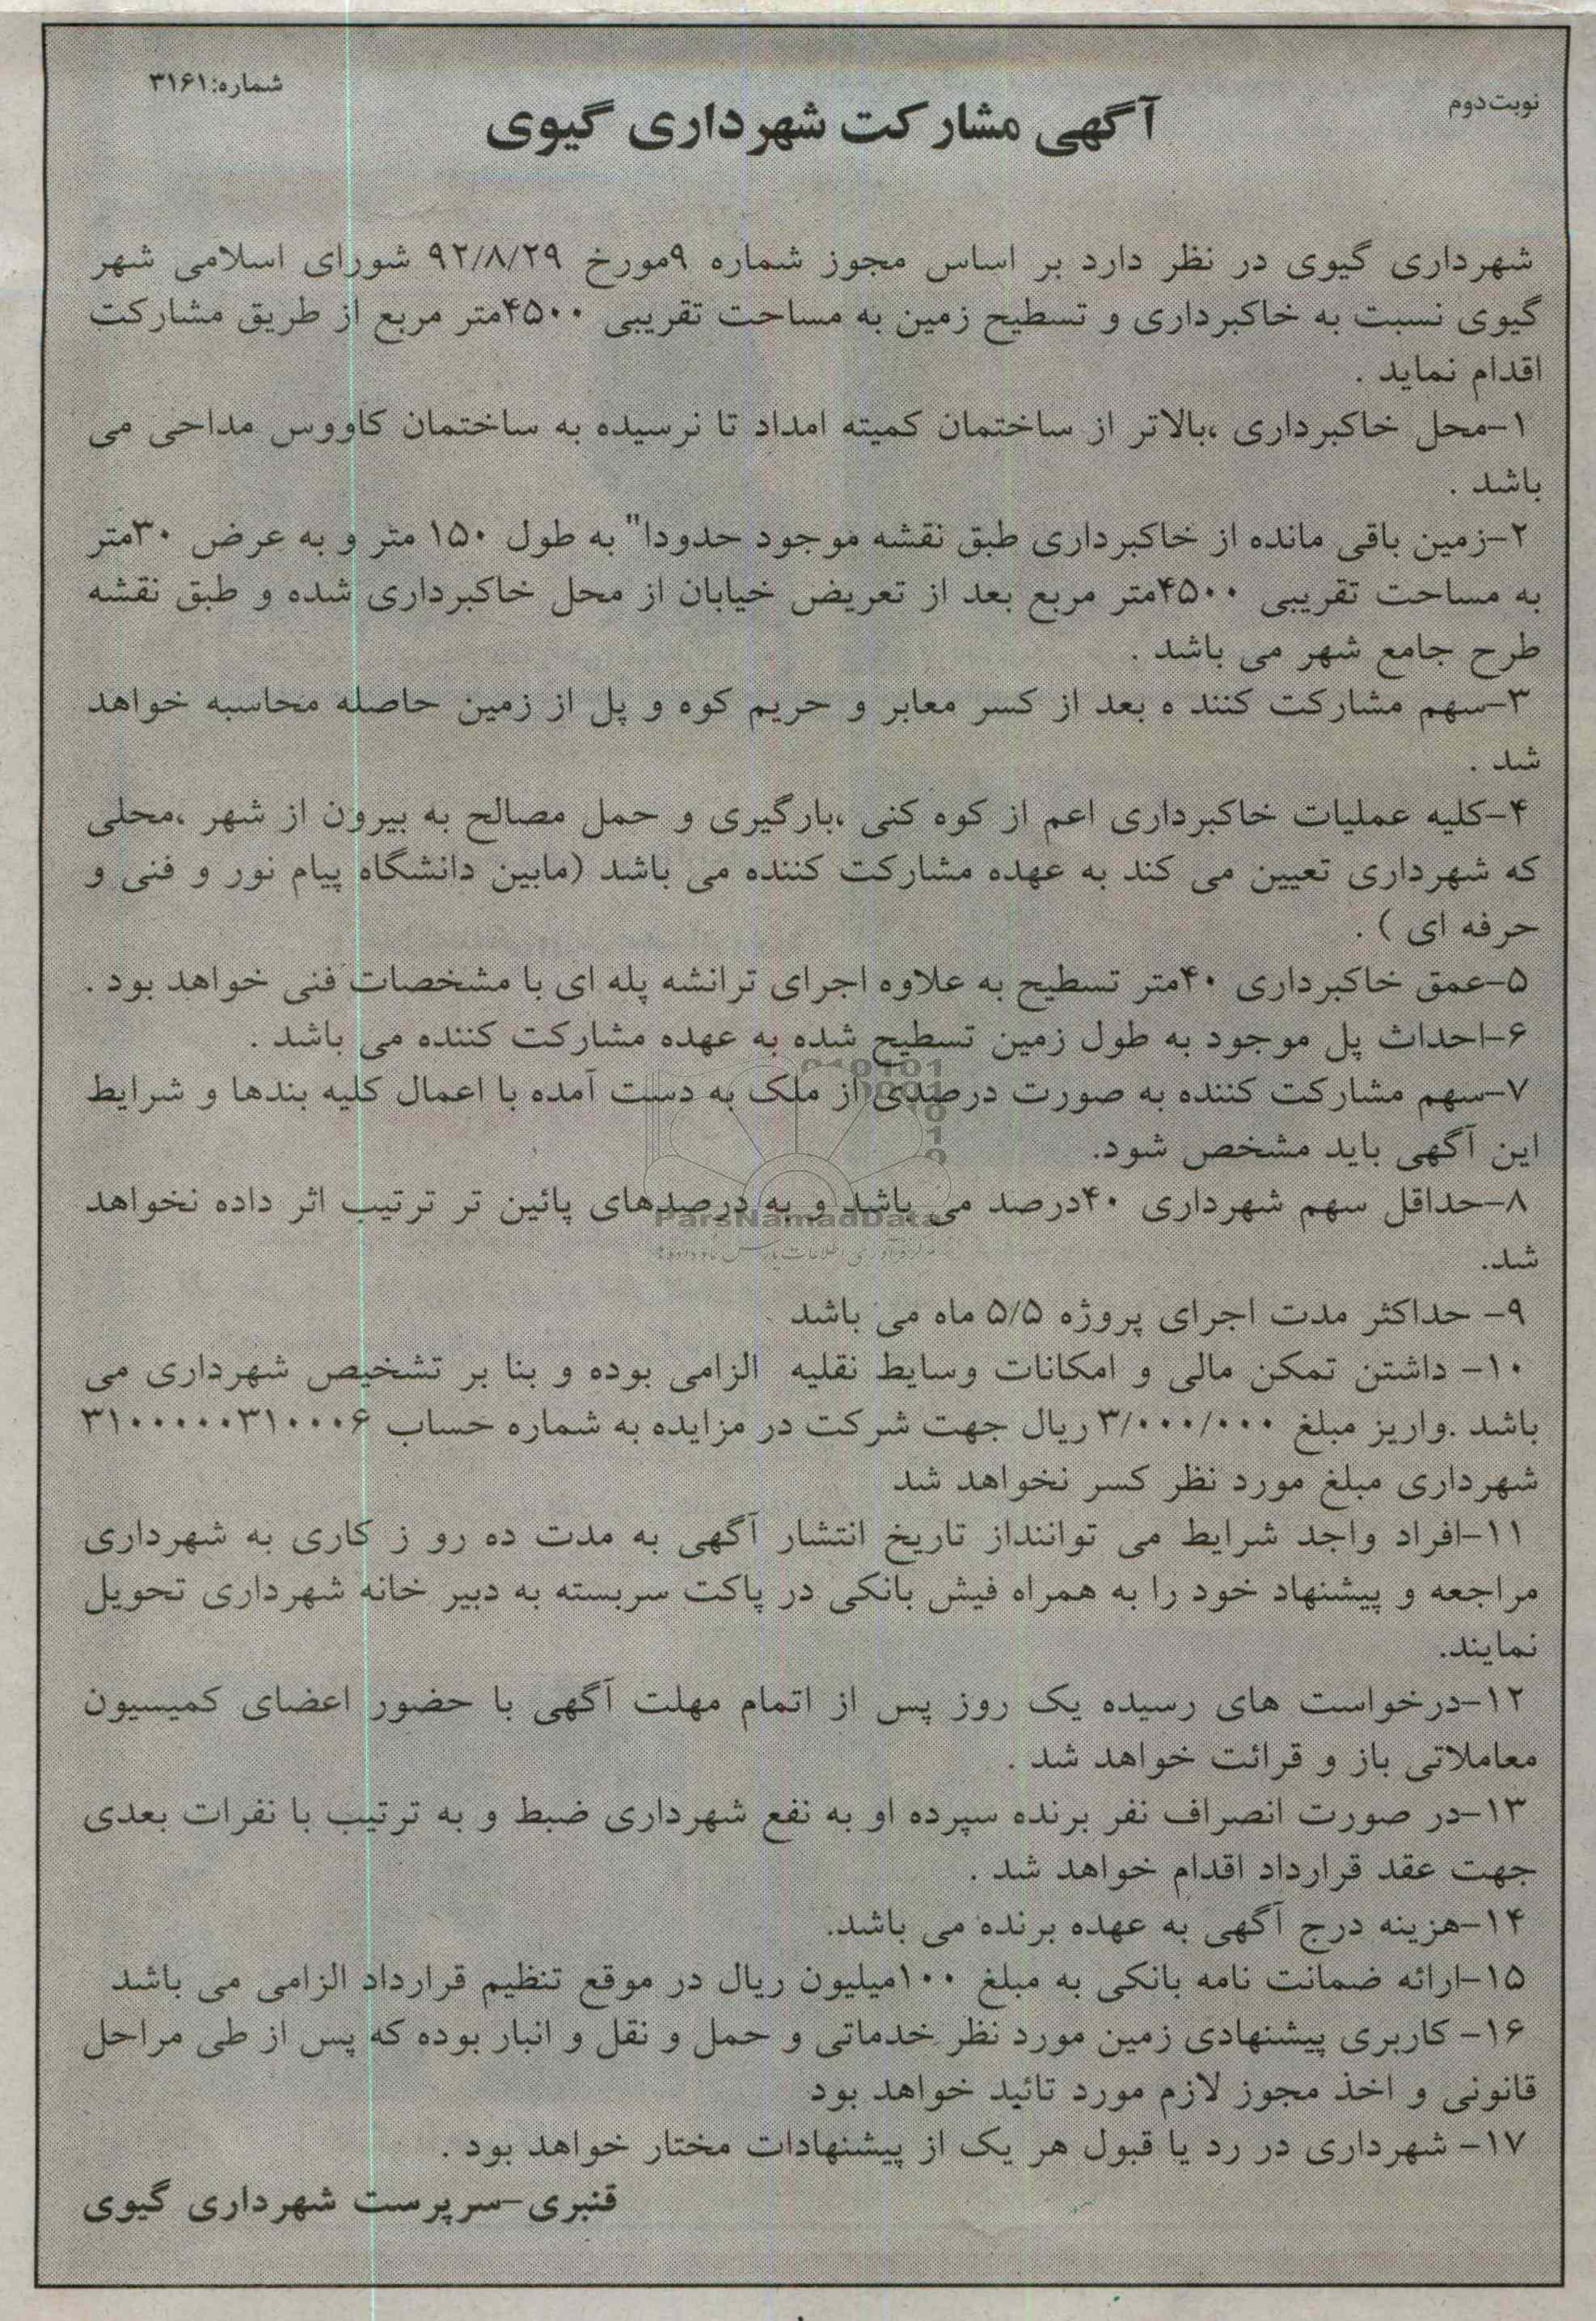 نوبت دوم
شماره:۳۱۶۱
آگهی مشارکت شهرداری گیوی
شهرداری گیوی در نظر دارد بر اساس مجوز شماره ۹مورخ ۹۲/۸/۲۹ شورای اسلامی شهر
گیوی نسبت به خاکبرداری و تسطیح زمین به مساحت تقریبی ۴۵۰۰متر مربع از طریق مشارکت
اقدام نماید .
۱-محل خاکبرداری ،بالاتر از ساختمان کمیته امداد تا نرسیده به ساختمان کاووس مداحی می
باشد .
۲-زمین باقی مانده از خاکبرداری طبق نقشه موجود حدودا" به طول ۱۵۰ متر و به عرض ۳۰متر
به مساحت تقریبی ۴۵۰۰متر مربع بعد از تعریض خیابان از محل خاکبرداری شده و طبق نقشه
طرح جامع شهر می باشد .
۳-سهم مشارکت کنند ه بعد از کسر معابر و حریم کوه و پل از زمین حاصله محاسبه خواهد
شد .
۴-کلیه عملیات خاکبرداری اعم از کوه کنی ،بارگیری و حمل مصالح به بیرون از شهر ،محلی
که شهرداری تعیین می کند به عهده مشارکت کننده می باشد (مابین دانشگاه پیام نور و فنی و
حرفه ای ) .
۵-عمق خاکبرداری ۴۰متر تسطیح به علاوه اجرای ترانشه پله ای با مشخصات فنی خواهد بود .
۶-احداث پل موجود به طول زمین تسطیح شده به عهده مشارکت کننده می باشد .
۷-سهم مشارکت کننده به صورت درصدی از ملک به دست آمده با اعمال کلیه بندها و شرایط
این آگهی باید مشخص شود.
۸-حداقل سهم شهرداری ۴۰درصد می باشد و به درصدهای پائین تر ترتیب اثر داده نخواهد
شد.
ParsNamadData
۹- حداکثر مدت اجرای پروژه ۵/۵ ماه می باشد
۱۰- داشتن تمکن مالی و امکانات وسایط نقلیه الزامی بوده و بنا بر تشخیص شهرداری می
باشد .واریز مبلغ ۳/۰۰۰/۰۰۰ ریال جهت شرکت در مزایده به شماره حساب ۳۱۰۰۰۰۰۳۱۰۰۰۶
شهرداری مبلغ مورد نظر کسر نخواهد شد
۱۱-افراد واجد شرایط می تواننداز تاریخ انتشار آگهی به مدت ده رو ز کاری به شهرداری
مراجعه و پیشنهاد خود را به همراه فیش بانکی در پاکت سربسته به دبیر خانه شهرداری تحویل
نمایند.
۱۲-درخواست های رسیده یک روز پس از اتمام مهلت آگهی با حضور اعضای کمیسیون
معاملاتی باز و قرائت خواهد شد .
۱۳-در صورت انصراف نفر برنده سپرده او به نفع شهرداری ضبط و به ترتیب با نفرات بعدی
جهت عقد قرارداد اقدام خواهد شد .
۱۴-هزینه درج آگهی به عهده برنده می باشد.
۱۵-ارائه ضمانت نامه بانکی به مبلغ ۱۰۰میلیون ریال در موقع تنظیم قرارداد الزامی می باشد
۱۶- کاربری پیشنهادی زمین مورد نظر خدماتی و حمل و نقل و انبار بوده که پس از طی مراحل
قانونی و اخذ مجوز لازم مورد تائید خواهد بود
۱۷- شهرداری در رد یا قبول هر یک از پیشنهادات مختار خواهد بود .
قنبری-سرپرست شهرداری گیوی